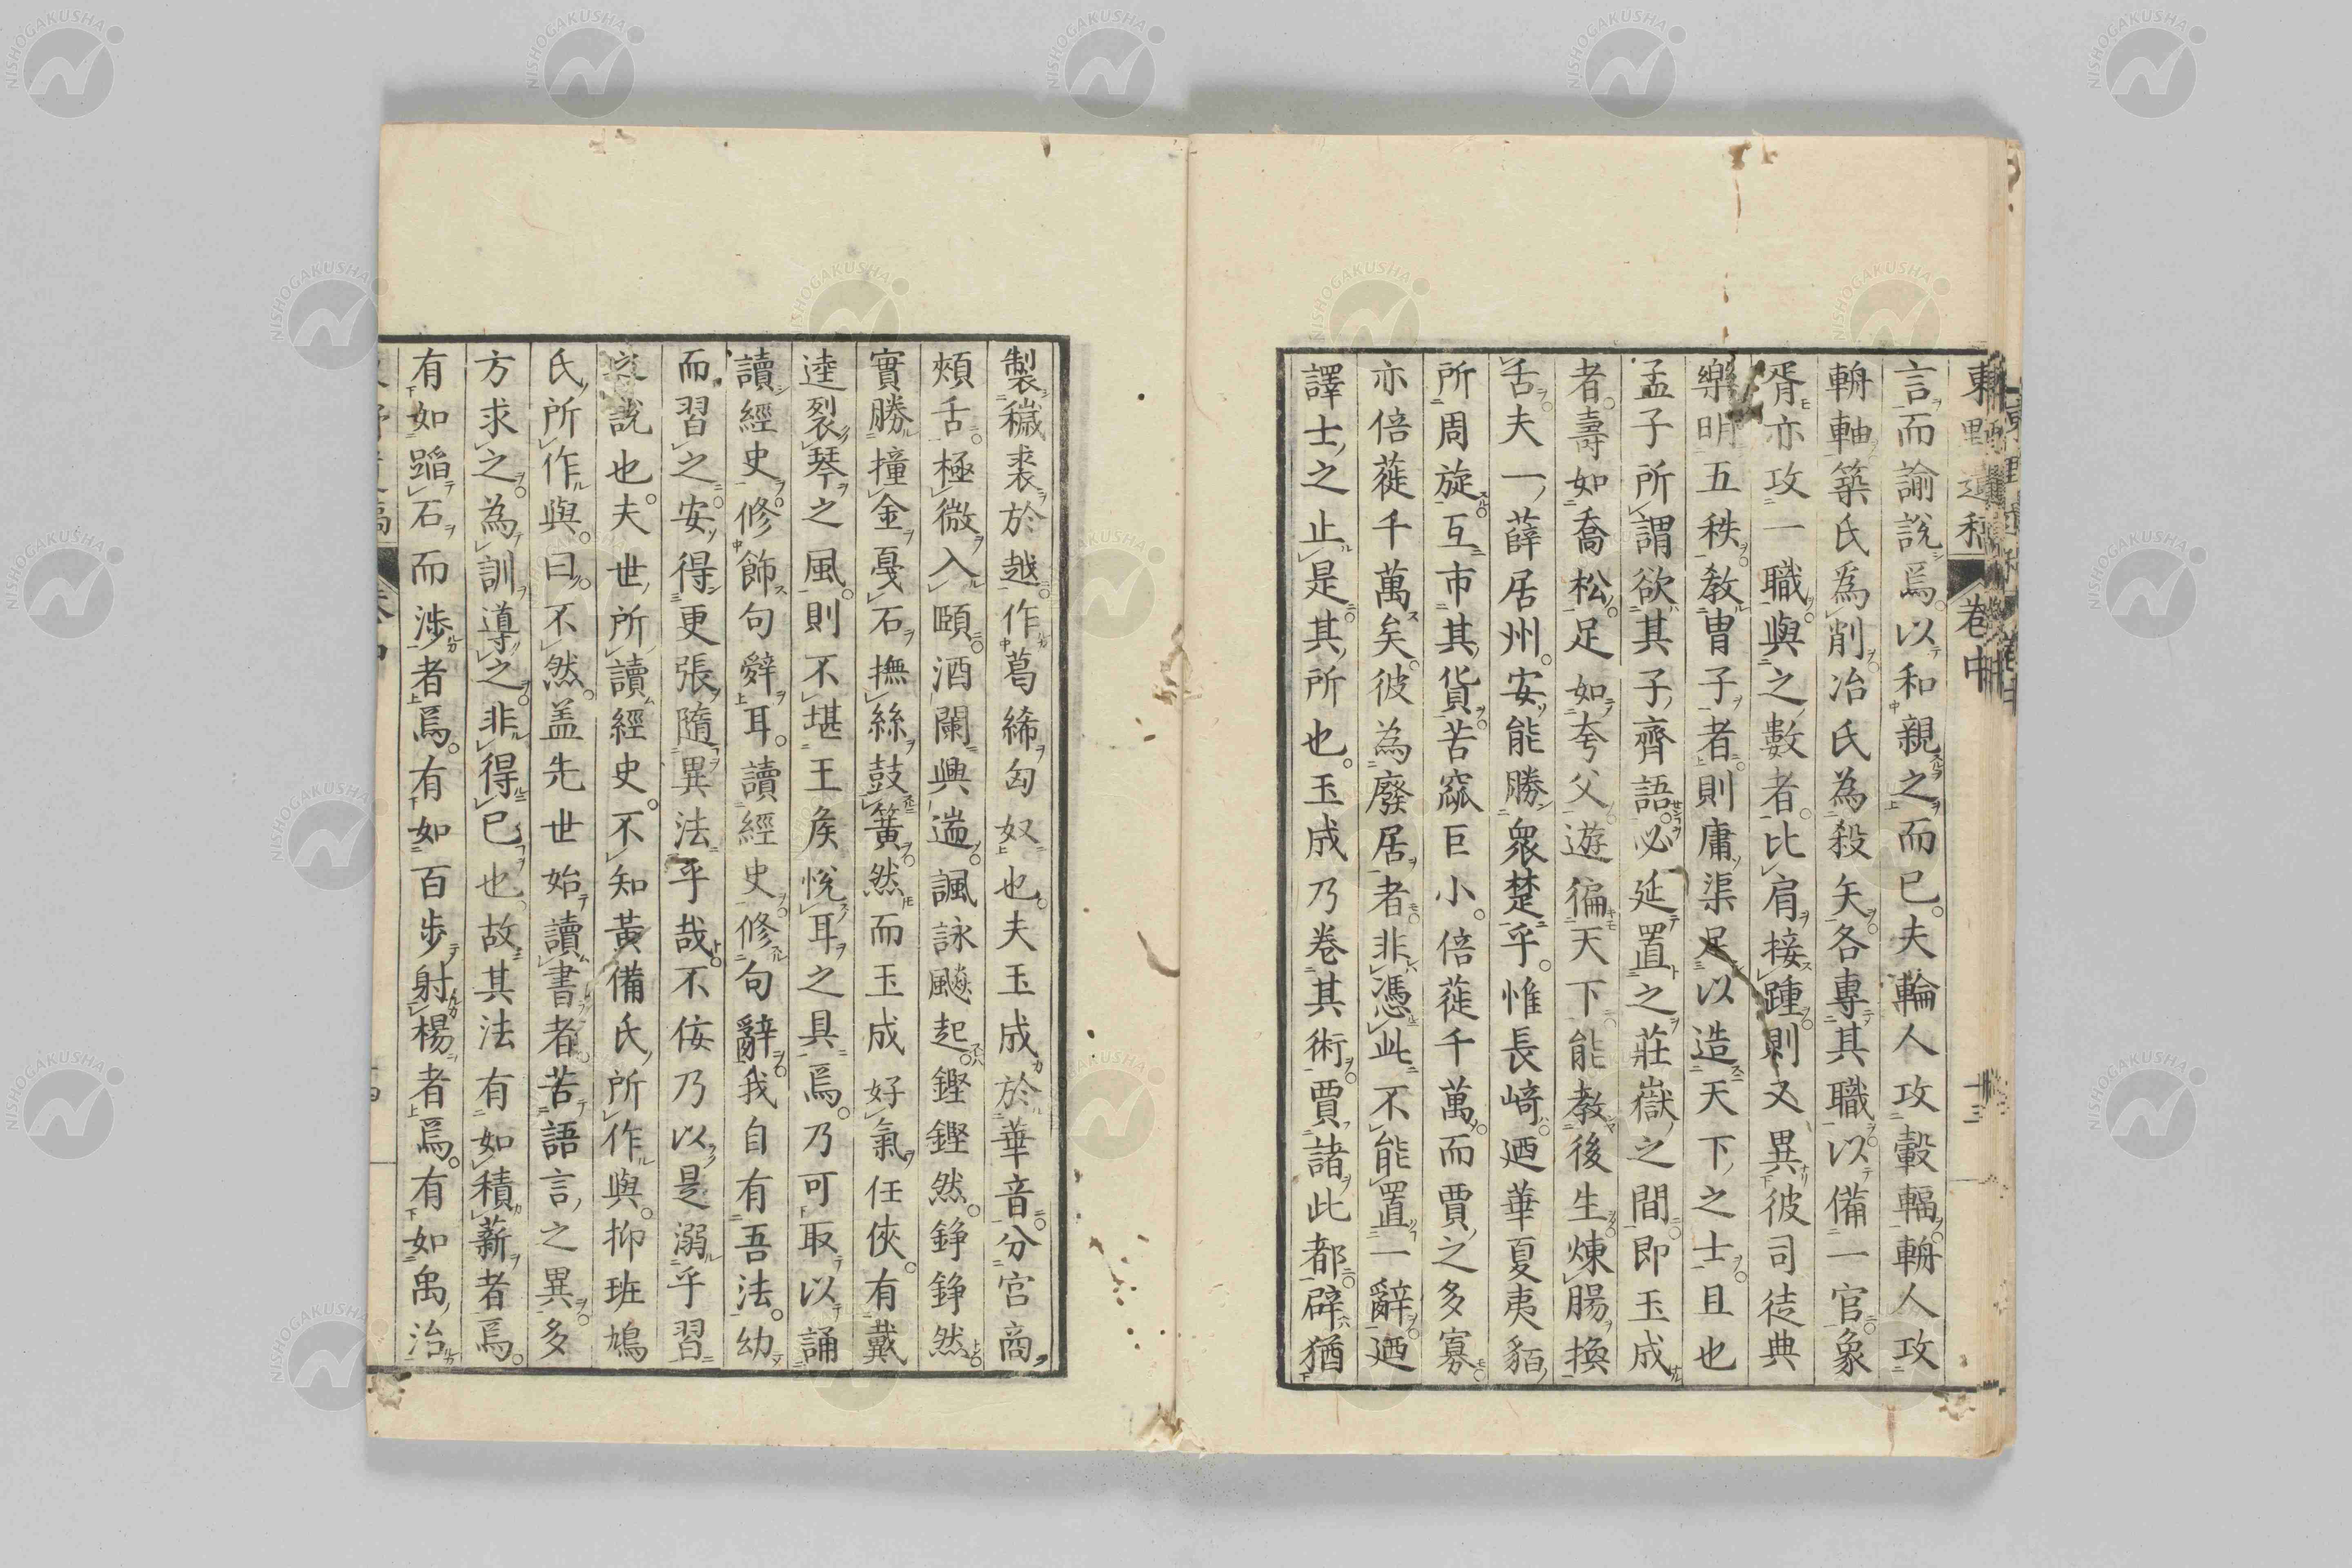 東野遺稿 卷中 十三
言而諭說焉以和親之而已夫輪人攻轂輻輈人攻
輈軸築氏爲削冶氏為殺矢各專其職以備一官象
胥亦攻一職與之數者比肩接踵則又異彼司徒典
樂明五秩教冑子者則庸渠足以造天下之士且也
孟子所謂欲其子齊語必延置之莊嶽之間即玉成
者壽如喬松足如夸父遊徧天下能教後生煉腸換
舌夫一薛居州安能勝衆楚乎惟長崎迺華夏夷貊
所周旋互市其貨苦窳巨小倍蓰千萬而賈之多寡
亦倍蓰千萬矣彼為廢居者非憑此不能置一辭迺
譯士之止是其所也玉成乃卷其術賈諸此都辟猶
製襪裘於越作葛絺匈奴也夫玉成於華音分宮商
頰舌極微入頤酒闌興遄諷詠飈起鏗鏗然錚錚然
實勝撞金戛石撫絲鼓簧然而玉成好氣任俠有戴
逵裂琴之風則不堪王矦悅耳之具焉乃可取以誦
讀經史修飾句辤耳讀經史修句辭我自有吾法幼
而習之安得更張隨異法乎哉不侫乃以是溺乎習
之說也夫世所讀經史不知黃備氏所作與抑班鳩
氏所作與曰不然盖先世始讀書者苦語言之異多
方求之為訓導之非得已也故其法有如積薪者焉
有如蹈石而渉者焉有如百步射楊者焉有如禹治